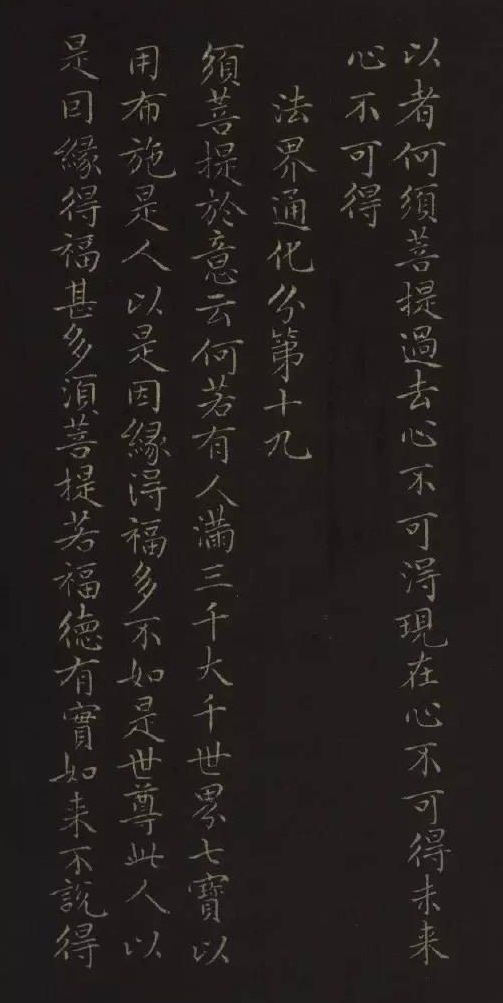 以者何須菩提過去心不可淂現在心不可得未来
心不可得
法界通化分第十九
須菩提於意云何若有人滿三千大千世界七寶以
用布施是人以是因緣淂福多不如是世尊此人以
是因緣得福甚多須菩提若福德有實如来不說得